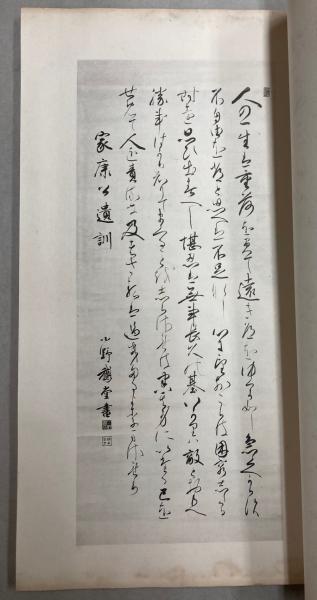 人の一生は重荷を負て遠き道をゆくか如し急へからす
不自由を常と思へは不足なし心に望おこらは困窮したる
時を思ひ出すへし堪忍は無事長久の基いかりは敵と思へ
勝事はかり知てまくる事をしらされは害其身にいたる己を
せめて人を責るな及はさるは過たるよりまされり
家康公遺訓
小野鵞堂書